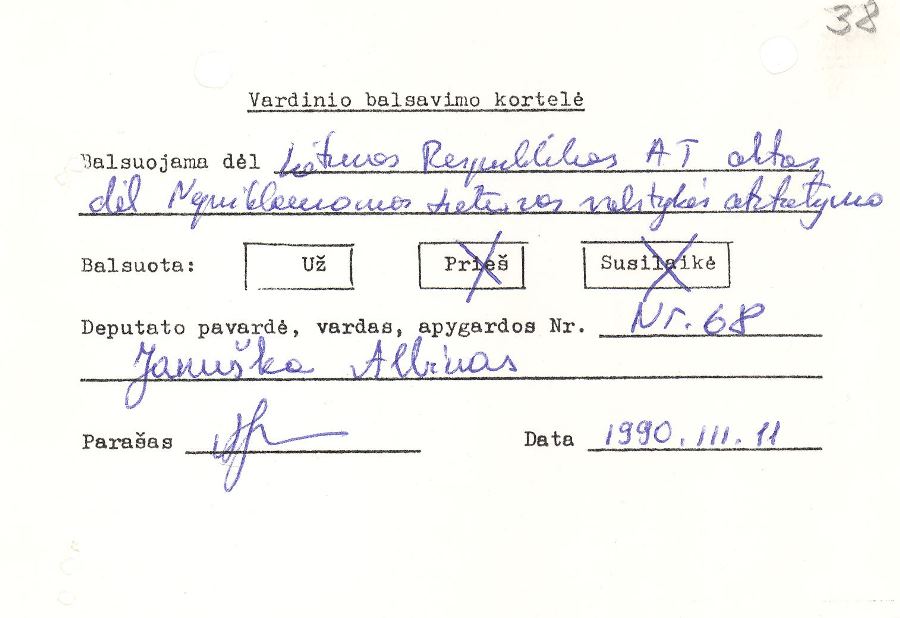 38
Vardinio balsavimo kortelė
Balsuojama dėl Lietuvos Respublikos AT aktas
dėl Nepriklausomos Lietuvos valstybės atstatymo
Balsuota: Už Prieš Susilaikė
Deputato pavardė, vardas, apygardos Nr. Nr. 68
Januška Albinas
Parašas Data 1990.III.11